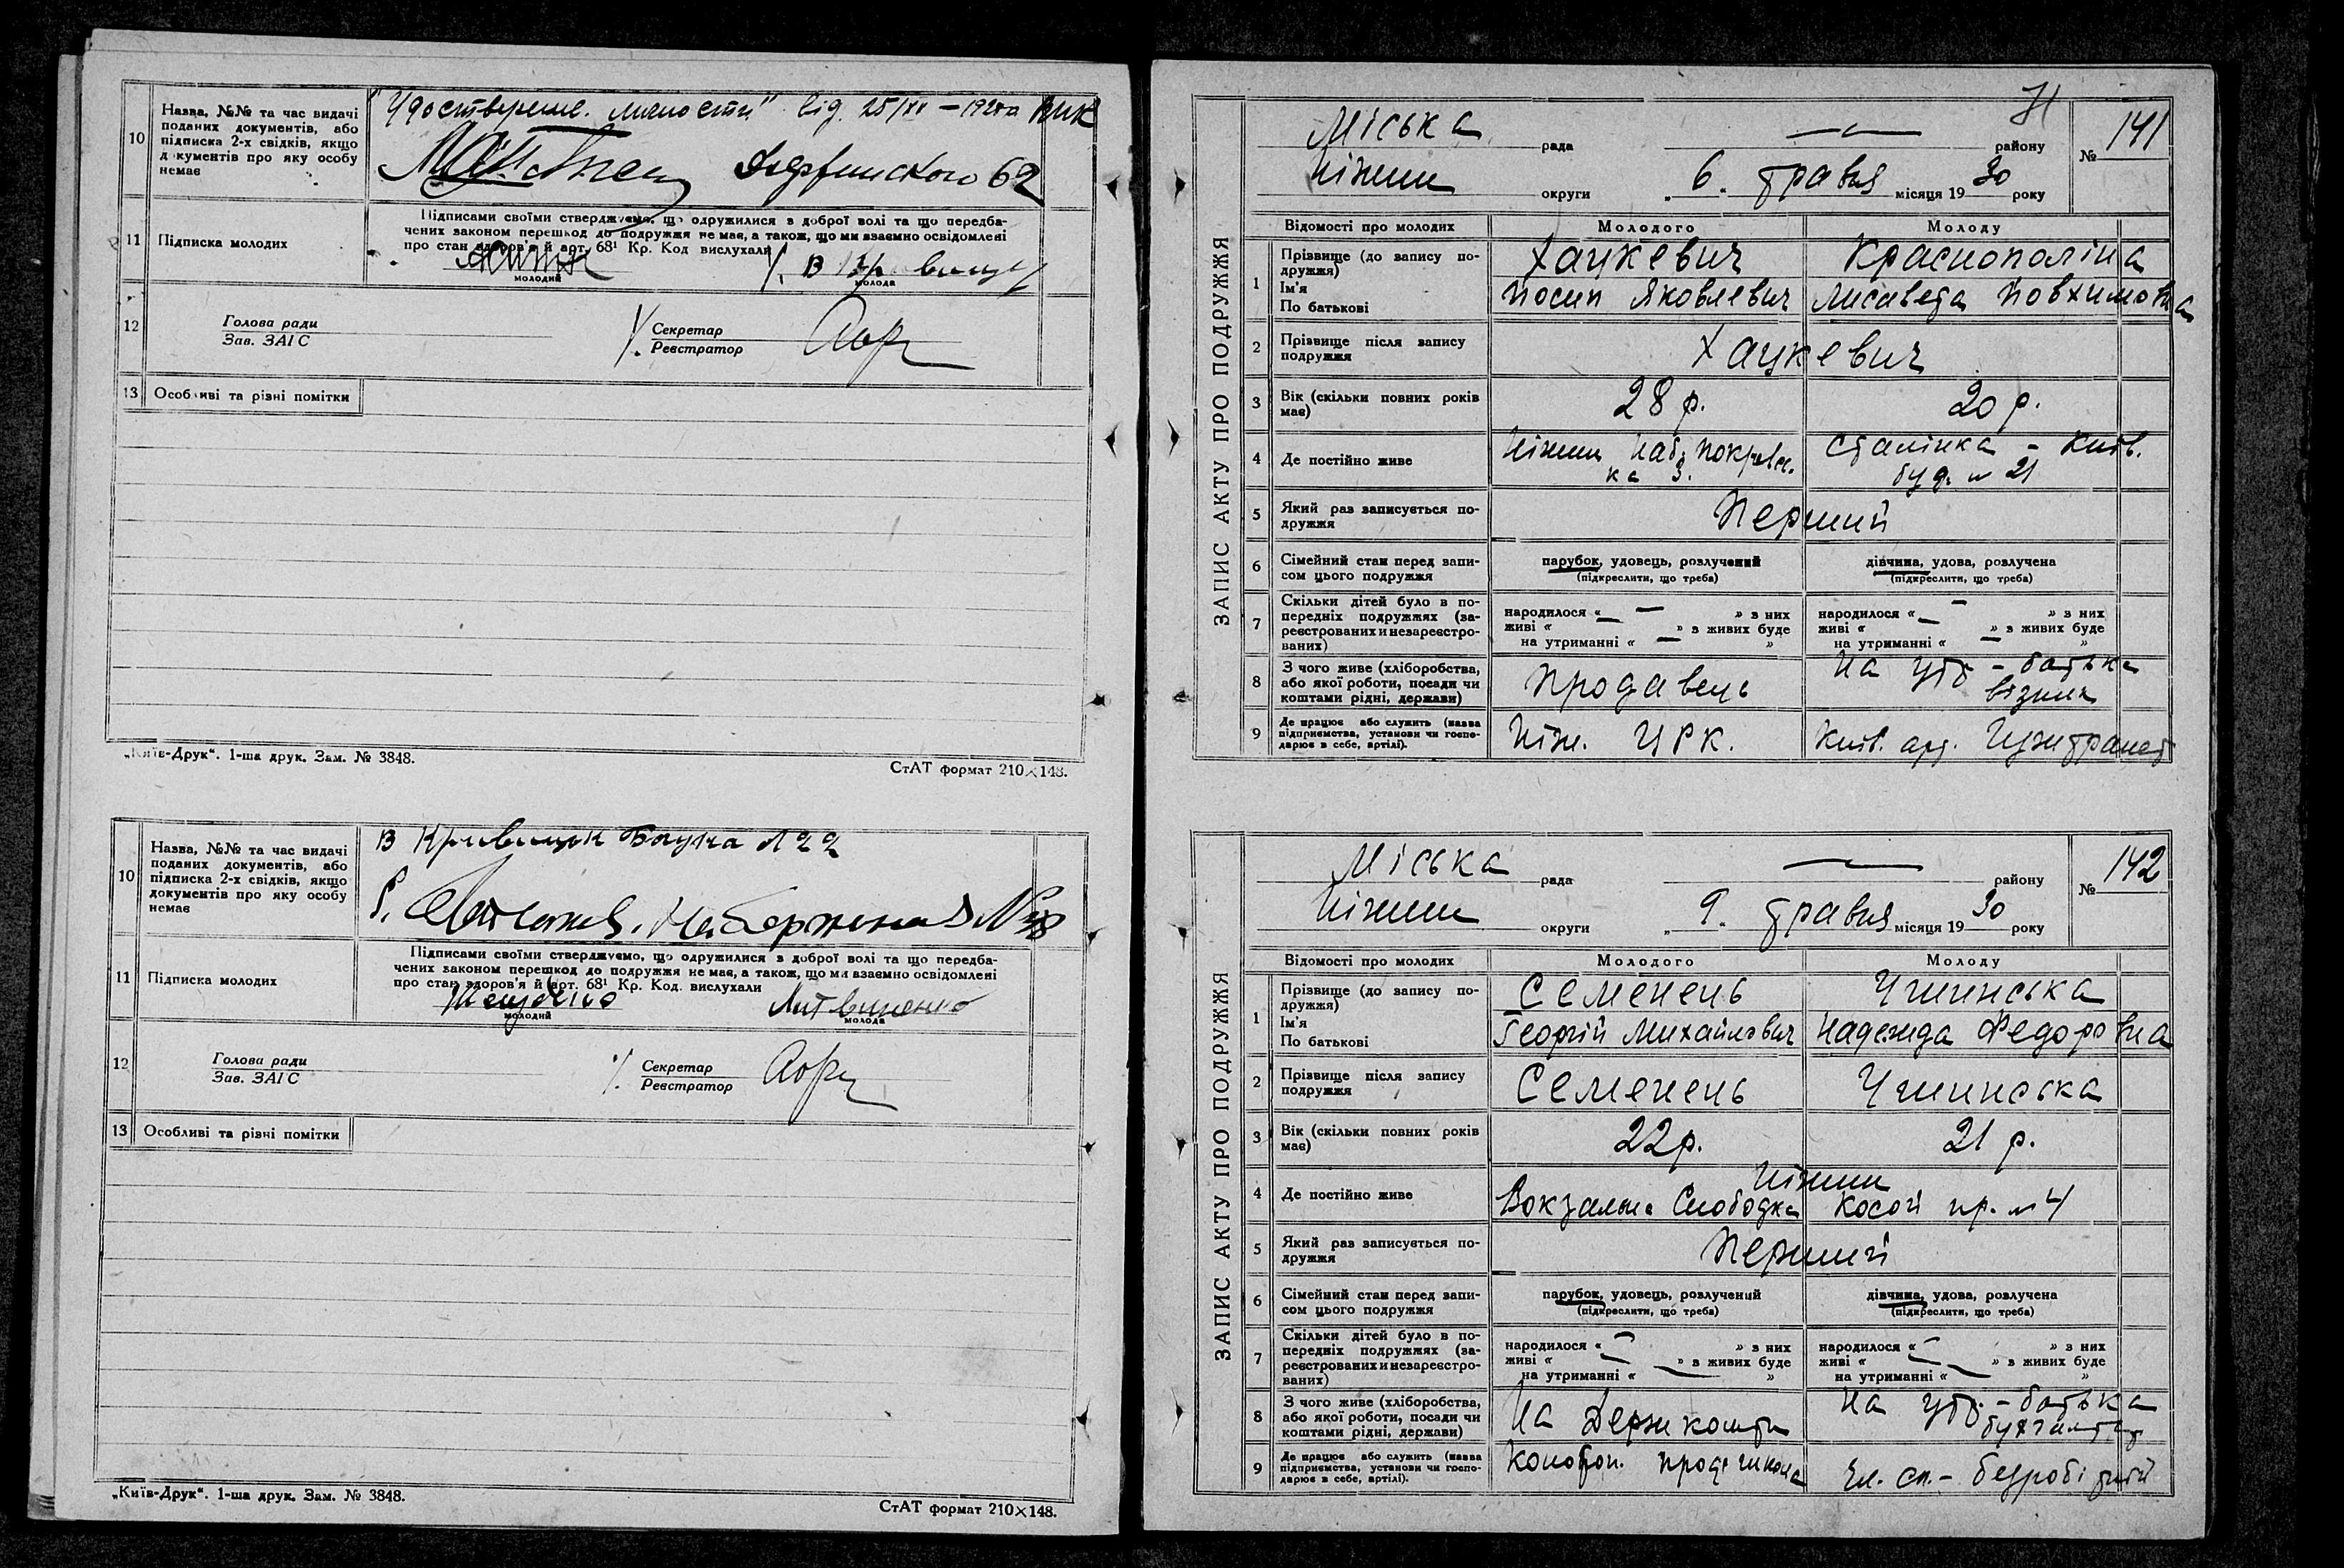 10
Назва, №№ та час видачі
поданих документів, або
підписка 2-х свідків, якщо
документів про яку особу
немає
"Удостверение личности" від. 25/XI – 192 ВИК
62
11
Підписка молодих
Підписами своїми стверджуємо, що одружилися з доброї волі та що передба-
чених законом перешкод до подружжя не має, а також, що ми взаємно освідомлені
про стан здоров'я й арт. 68¹ Кр. Код вислухали
молодий
молода
12
Голова ради
Зав. ЗАГС
Секретар
Реєстратор
13
Особливі та різні помітки
„Київ-Друк“. 1-ша друк. Зам. № 3848.
СтАТ формат 210×148.
10
Назва, №№ та час видачі
поданих документів, або
підписка 2-х свідків, якщо
документів про яку особу
немає
В 22
11
Підписка молодих
Підписами своїми стверджуємо, що одружилися з доброї волі та що передба-
чених законом перешкод до подружжя не має, а також, що ми взаємно освідомлені
про стан здоров'я й арт. 68¹ Кр. Код. вислухали
Литвиненко
молодий
молода
12
Голова ради
Зав. ЗАГС
Секретар
Реєстратор
13
Особливі та різні помітки
„Київ-Друк“. 1-ша друк. Зам. № 3848.
СтАТ формат 210×148.
71
Міська рада района
району
№ 141
Ніжин округи „ 6. травня місяця 1930 року
ЗАПИС АКТУ ПРО ПОДРУЖЖЯ
Відомості про молодих
Молодого
Молоду
1
Прізвище (до запису по-
дружжя)
Ім'я
По батькові
Хацкевич
Краснополіна
Йосип Яковлевич
Лисавета Йовхимовна
2
Прізвище після запису
подружжя
Хацкевич
3
Вік (скільки повних років
має)
28 р.
20 р.
4
Де постійно живе
Ніжин Наб. Покровсь-
ка 3.
Сталінка – Київ.
буд. № 21
5
Який раз записується по-
дружжя
Перший
6
Сімейний стан перед запи-
сом цього подружжя
парубок, удовець, розлучений
(підкреслити, що треба)
дівчина, удова, розлучена
(підкреслити, що треба)
7
Скільки дітей було в по-
передніх подружжях (за-
реєстрованих и незареєстро-
ваних)
народилося « — » з них
живі « — » з живих буде
на утриманні « »
народилося « — » з них
живі « — » з живих буде
на утриманні « »
8
З чого живе (хліборобства,
або якої роботи, посади чи
коштами рідні, держави)
Продавець
На утр. – батька
візник
9
Де працює або служить (назва
підприємства, установи чи госпо-
дарює в себе, артілі).
Ніж. ЦРК.
Київ. арт.
Міська рада
району
№ 142
Ніжин округи „ 9. травня місяця 1930 року
ЗАПИС АКТУ ПРО ПОДРУЖЖЯ
Відомості про молодих
Молодого
Молоду
1
Прізвище (до запису по-
дружжя)
Ім'я
По батькові
Семенець
Георгій Михайлович
Надежда Федоровна
2
Прізвище після запису
подружжя
Семенець
3
Вік (скільки повних років
має)
22 р.
21 р.
4
Де постійно живе
Ніжин
Вокзальна Слободка
Косой пр. № 4
5
Який раз записується по-
дружжя
Перший
6
Сімейний стан перед запи-
сом цього подружжя
парубок, удовець, розлучений
(підкреслити, що треба)
дівчина, удова, розлучена
(підкреслити, що треба)
7
Скільки дітей було в по-
передніх подружжях (за-
реєстрованих и незареєстро-
ваних)
народилося « — » з них
живі « — » з живих буде
на утриманні « »
народилося « — » з них
живі « — » з живих буде
на утриманні « »
8
З чого живе (хліборобства,
або якої роботи, посади чи
коштами рідні, держави)
На Держ кошти
На утр. – батька
9
Де працює або служить (назва
підприємства, установи чи госпо-
дарює в себе, артілі).
Чл. сп. – безробітній